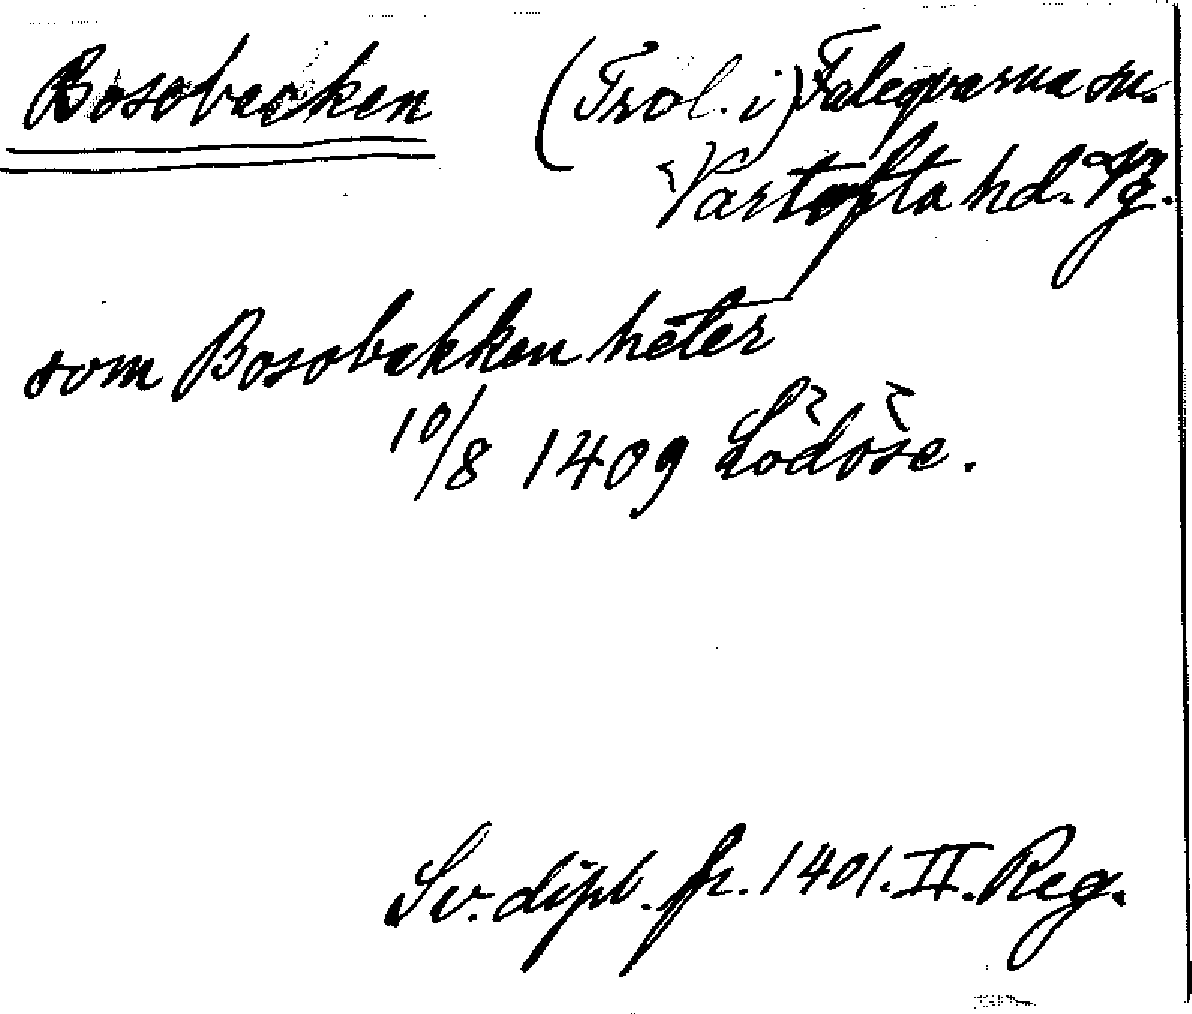 Bosobacken (Trol. i) Faleqvarna sn.
Vartofta hd. Vg.
som Bosobakken heter
10/8 1409 Lödöse.
Sv. dipl. fr. 1401. II. Reg.